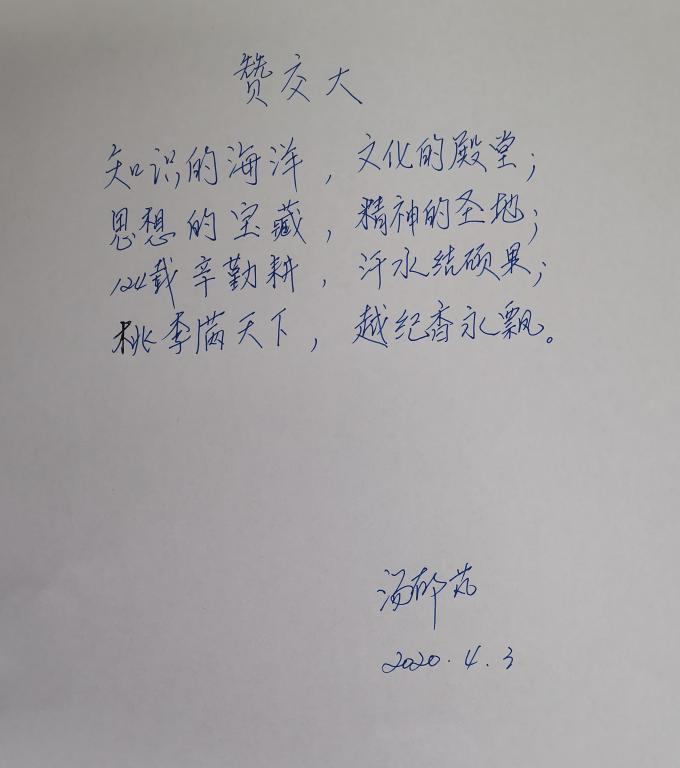 赞交大
知识的海洋，文化的殿堂；
思想的宝藏，精神的圣地；
124载辛勤耕，汗水结硕果；
桃李满天下，越纪香永飘。
汤
2020.4.3